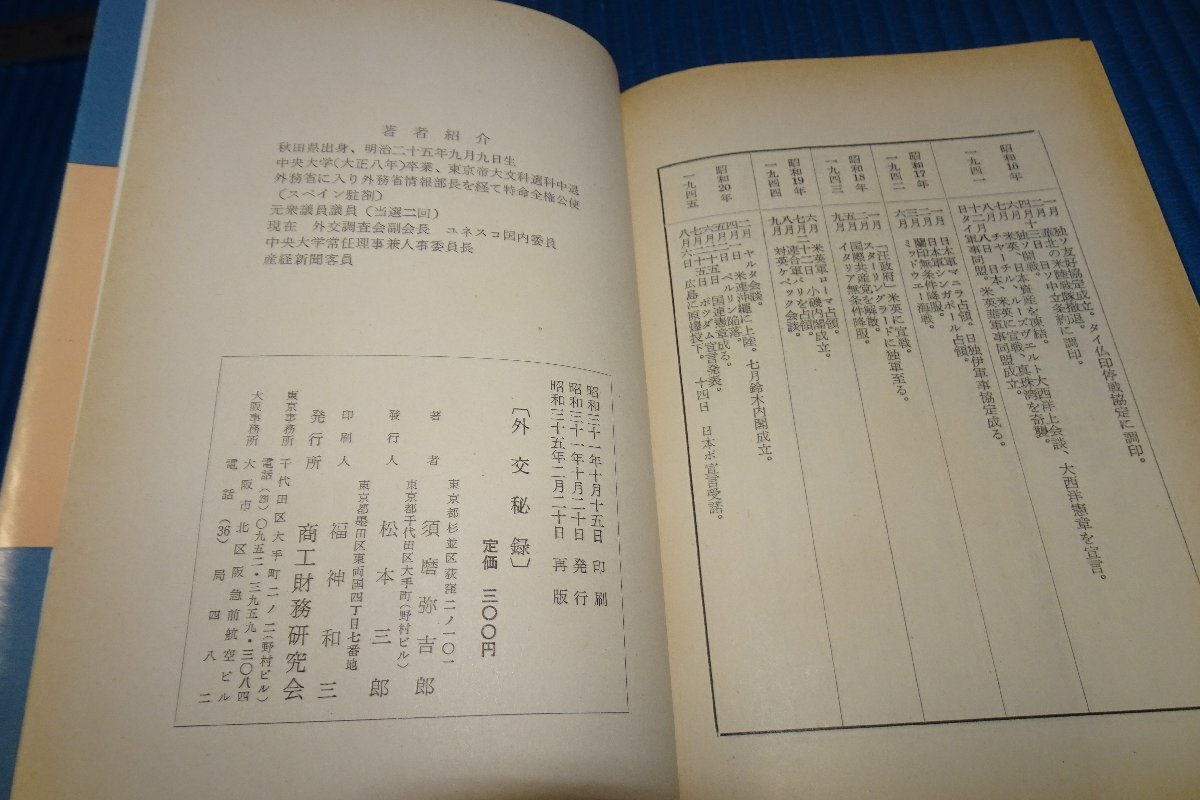 昭和16年
一九四一
一月 独ソ友好協定成立。タイ仏印停戦協定に調印。
二月 華北の米陸戦隊撤退。
四月十三日 日ソ中立条約に調印。
六月 独ソ開戦。
八月 チャーチル、ルーズヴェルト大西洋上会談、大西洋憲章を宣言。
十二月八日 日本、米英に宣戦、真珠湾を奇襲。
日タイ軍事同盟。
昭和17年
一九四二
一月 日本軍マニラ占領。日独伊軍事協定成る。
二月 日本軍シンガポール占領。
三月 蘭印無条件降服。
六月 ミッドウェー海戦。
昭和18年
一九四三
一月 「汪政府」米英に宣戦。
二月 スターリングラードに独軍至る。
五月 国際共産党を解散。
九月 イタリア無条件降服。
昭和19年
一九四四
六月 米英軍ローマ占領。
七月二十二日 小磯内閣成立。
八月 連合軍パリを占領。
九月 対英ケベック会談。
昭和20年
一九四五
二月 ヤルタ会談。
四月一日 米連沖繩に上陸。七月鈴木内閣成立。
五月二日 ベルリン陥落。
六月二十五日 国連憲章成る。
七月二十五日 ポツダム宣言発表。
八月六日 広島に原爆投下。十四日 日本ポ宣言受諾。
著者紹介
秋田県出身、明治二十五年九月九日生
中央大学(大正八年)卒業、東京帝大文科選科中退
外務省に入り外務省情報部長を経て特命全権公使
(スペイン駐剳)
元衆議員議員(当選二回)
現在 外交調査会副会長 ユネスコ国内委員
中央大学常任理事兼人事委員長
産経新聞客員
昭和三十一年十月十五日 印刷
昭和三十一年十月二十日 発行
昭和三十五年二月二十日 再版
〔外交秘録〕
定価 三〇〇円
東京都杉並区荻窪二ノ一〇一
著者 須磨弥吉郎
東京都千代田区大手町(野村ビル)
發行人 松本三郎
東京都墨田区東両国四丁目七番地
印刷人 福神和三
発行所 商工財務研究会
東京事務所 千代田区大手町二ノ二(野村ビル)
電話(23)〇九五二・三九五九・三〇八四
大阪事務所 大阪市北区阪急前航空ビル
電話(36)局四八二